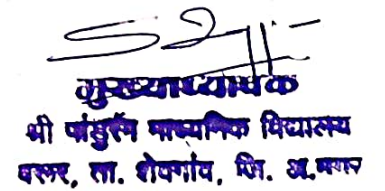 मुख्याध्यापक
श्री पांडुरंग माध्यमिक विद्यालय
ता. शेवगांव, जि. अ.नगर